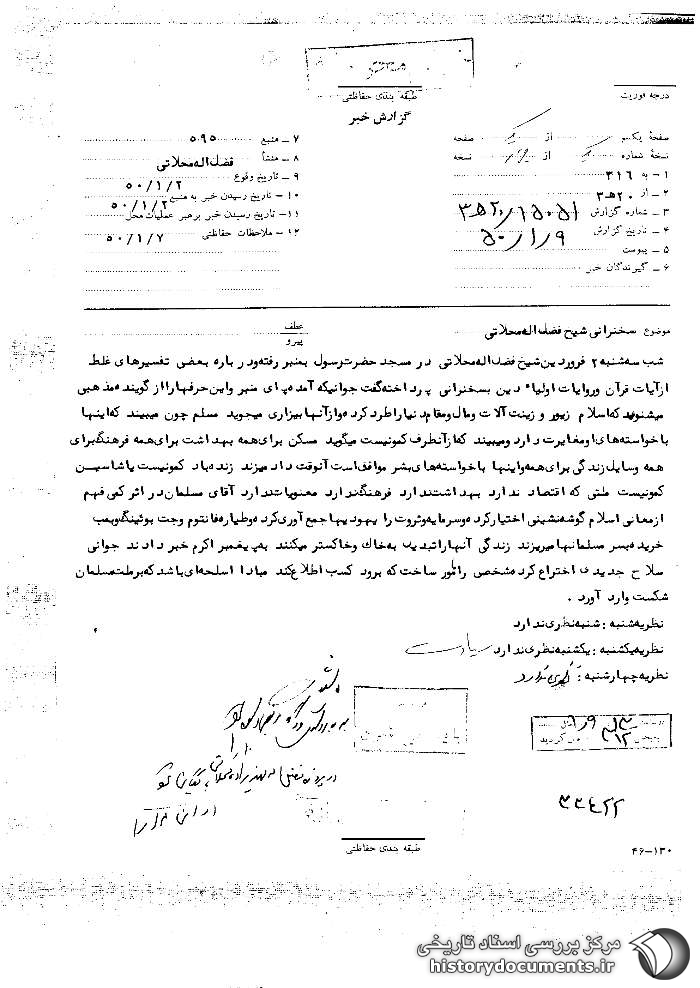 درجه فوریت
طبقه بندی حفاظتی
گزارش خبر
صفحه یکم از صفحه
نسخه شماره از نسخه
۱ – به ۳۱۶
۲ – از ۲۰ ه ۳
۳ – شماره گزارش
۴ – تاریخ گزارش ۵۰/۱/۹
۵ – پیوست
۶ – گیرندگان خبر
۷ – منبع ۵۹۵
۸ – منشأ فضل اله محلاتی
۹ – تاریخ وقوع ۵۰/۱/۲
۱۰ – تاریخ رسیدن خبر به منبع ۵۰/۱/۲
۱۱ – تاریخ رسیدن خبر برهبر عملیات محل ۵۰/۱/۷
۱۲ – ملاحظات حفاظتی
موضوع سخنرانی شیخ فضل اله محلاتی
عطف
پیرو
شب سه شنبه ۲ فروردین شیخ فضل اله محلاتی در مسجد حضرت رسول بمنبر رفته و در باره بعضی تفسیرهای غلط
از آیات قرآن و روایات اولیاء دین بسخنرانی پرداخته گفت جوانیکه آمده پای منبر و این حرفها را از گوینده مذهبی
میشنوید که اسلام زیور و زینت آلات و مال و مقام دنیا را طرد کرده و از آنها بیزاری میجوید مسلم چون میبیند که اینها
با خواسته های او مغایرت دارد و میبیند که از آنطرف کمونیست میگوید مسکن برای همه بهداشت برای همه فرهنگ برای
همه وسایل زندگی برای همه و اینها با خواسته های بشر موافق است آنوقت داد میزند زنده باد کمونیست یا شاسین
کمونیست ملتی که اقتصاد ندارد بهداشت ندارد فرهنگ ندارد معنویات ندارد آقای مسلمان در اثر کمی فهم
از معانی اسلام گوشه نشینی اختیار کرده و سرمایه و ثروت را یهودیها جمع آوری کرده و طیاره فانتوم وجت بوئینگ و بمب
خریده بسر مسلمانها میریزند زندگی آنها را تبدیل به خاک و خاکستر میکنند به پیغمبر اکرم خبر دادند جوانی
سلاح جدیدی اختراع کرده شخصی را مأمور ساخت که برود کسب اطلاع کند مبادا اسلحه ای باشد که بر ملت مسلمان
شکست وارد آورد .
نظریه شنبه : شنبه نظری ندارد
نظریه یکشنبه : یکشنبه نظری ندارد
نظریه چهارشنبه : نظری ندارد
۳۳۴۲۲
طبقه بندی حفاظتی
۴۶–۱۳۰
مرکز بررسی اسناد تاریخی
historydocuments.ir